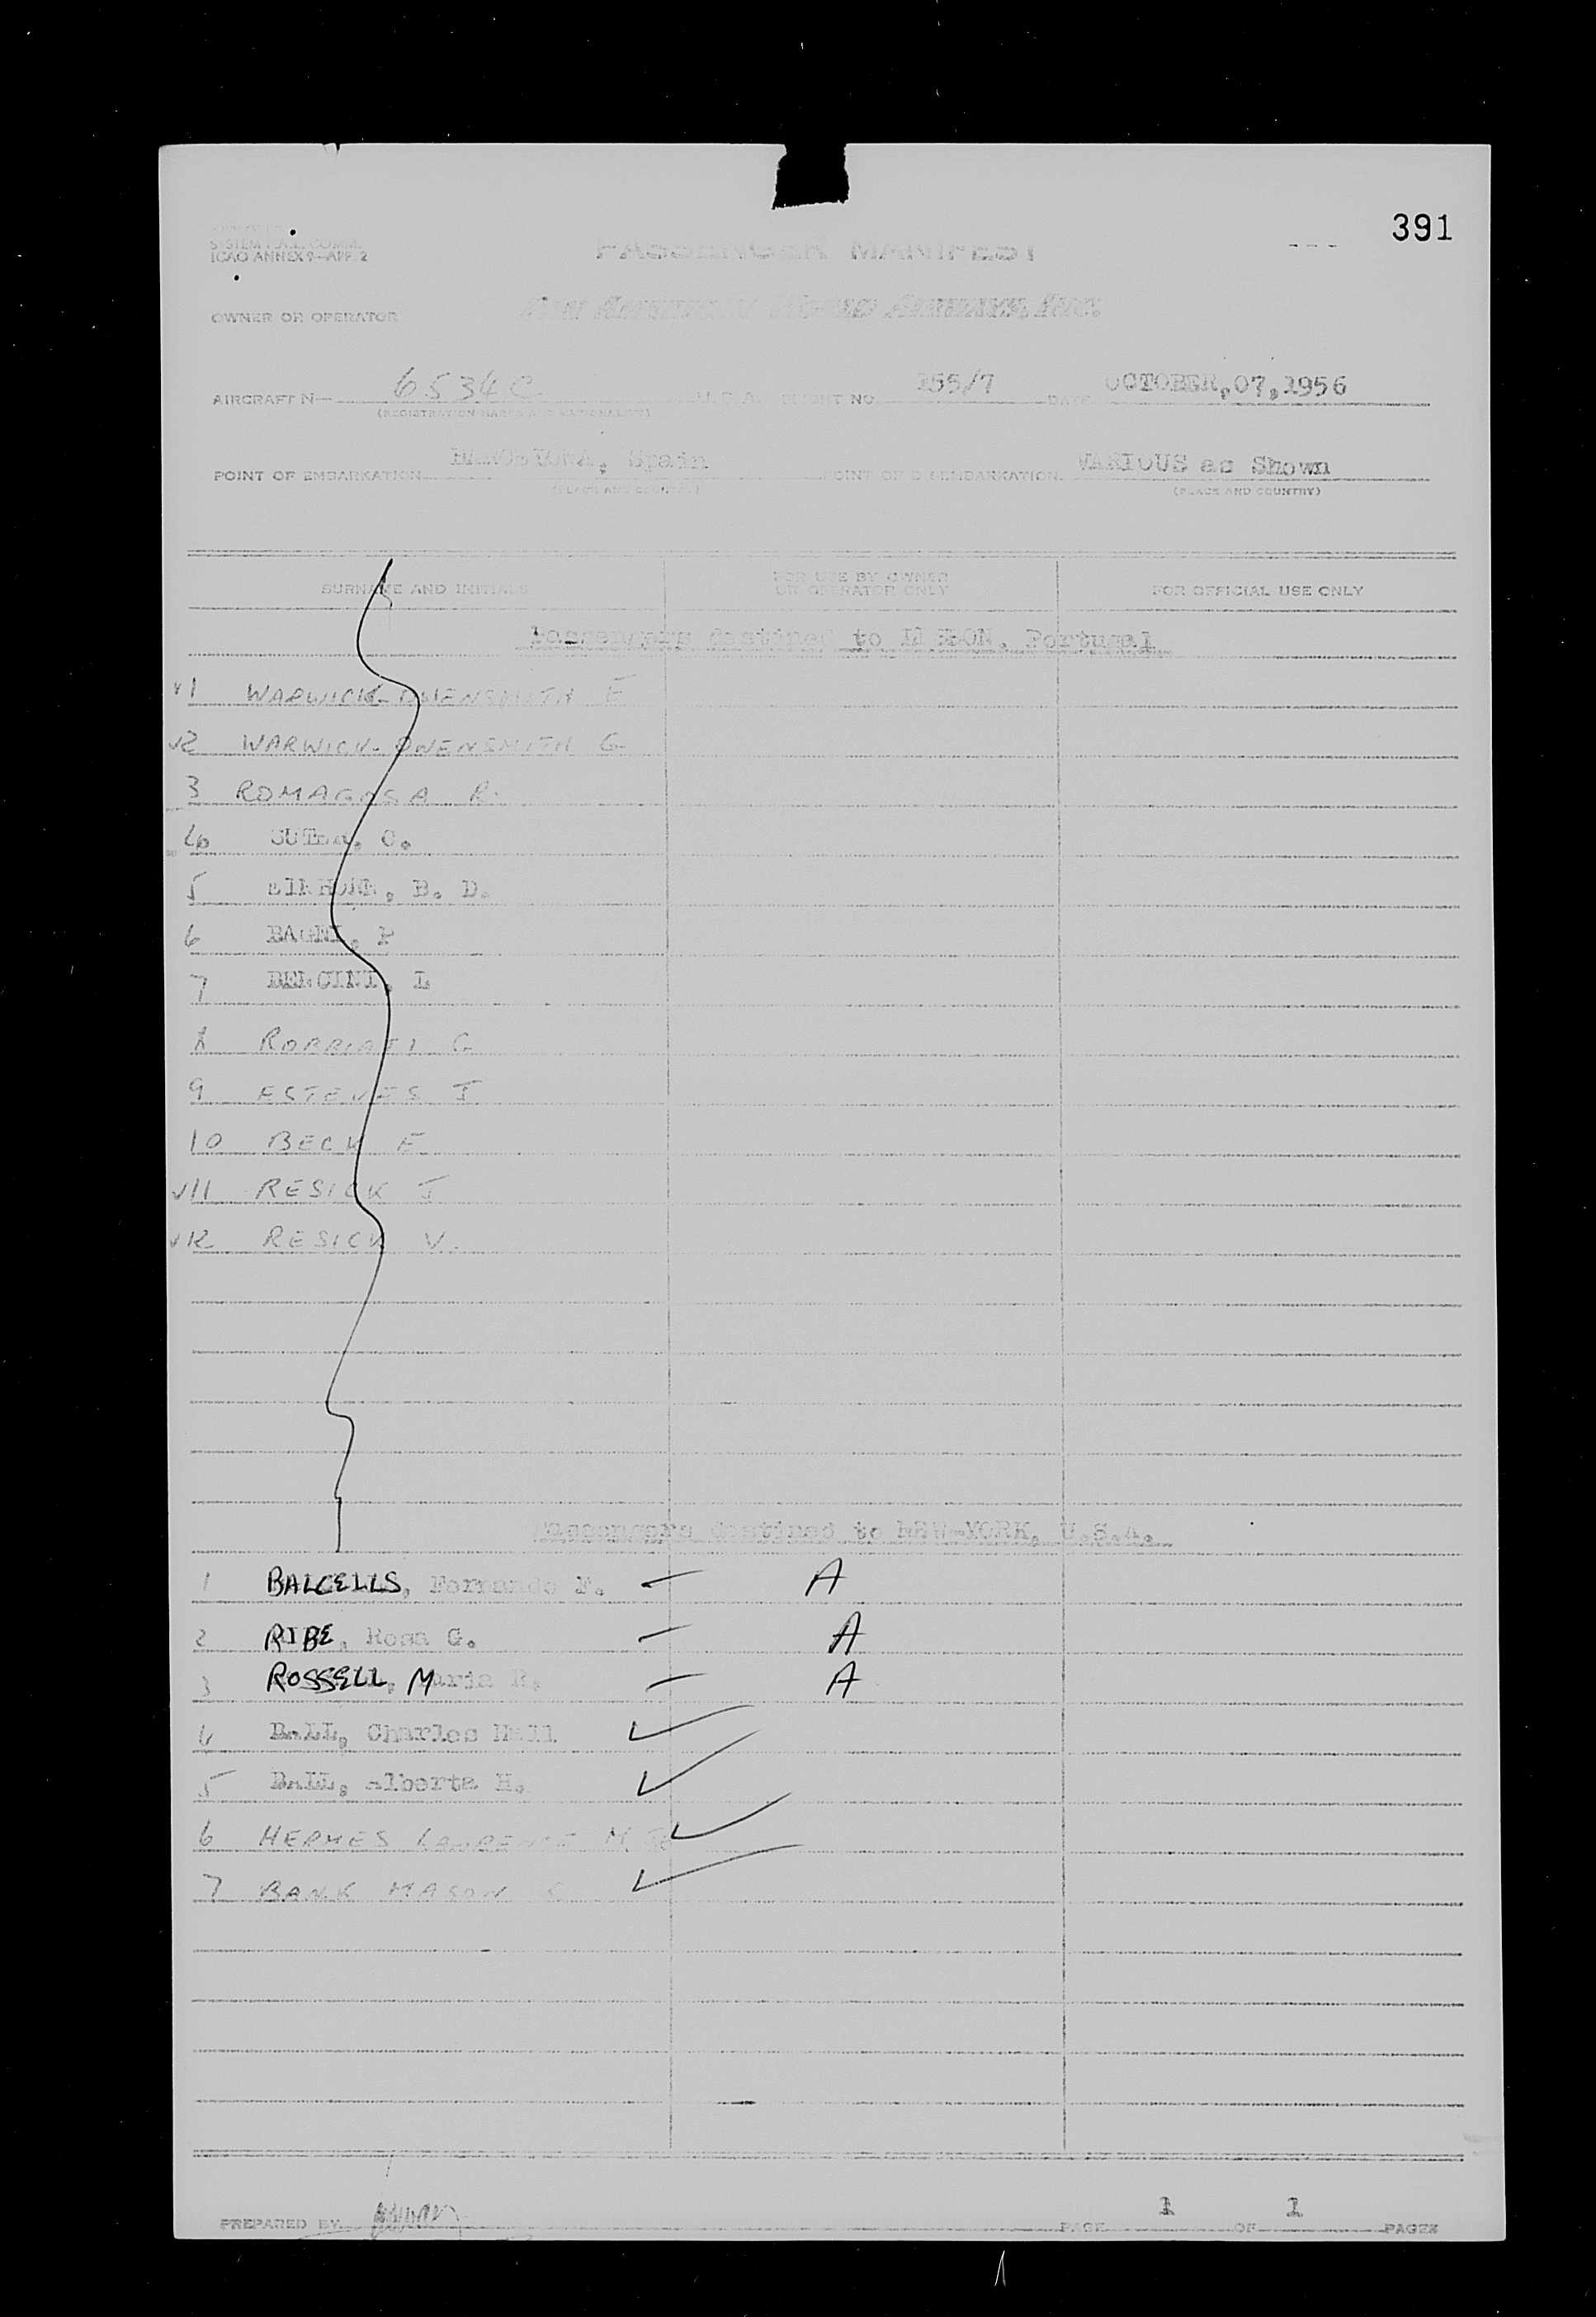 391
SYSTEM P.A.L. COMM.
ICAO ANNEX 9—APP. 2
PASSENGER MANIFEST
OWNER OR OPERATOR
PAN AMERICAN WORLD AIRWAYS, INC.
AIRCRAFT N— 6534C U.S.A. FLIGHT NO. 155/7 DATE OCTOBER,07,1956
(REGISTRATION MARKS AND NATIONALITY)
POINT OF EMBARKATION BARCELONA, Spain POINT OF DISEMBARKATION VARIOUS as Shown
(PLACE AND COUNTRY) (PLACE AND COUNTRY)
SURNAME AND INITIALS FOR USE BY OWNER OR OPERATOR ONLY FOR OFFICIAL USE ONLY
Passengers destined to LISBON, Portugal
√1 WARWICK-OWENSMITH E
√2 WARWICK-OWENSMITH G
3 ROMAGOSA R.
4 C.
5 B. D.
6 P
7 L
8 G
9 ESTEVES J
10 BECK E
√11 RESICK J
√12 RESICK V.
Passengers destined to NEW-YORK, U.S.A.
1 BALCELLS, Fernando F. — A
2 RIBE, Rosa G. — A
3 ROSSELL, Maria R. — A
4 BALL, Charles Hall ✓
5 BALL, Alberta H. ✓
6 HERMES LAURENCE M ✓
7 BANK MASON ✓
PREPARED BY PAGE 1 OF 1 PAGES